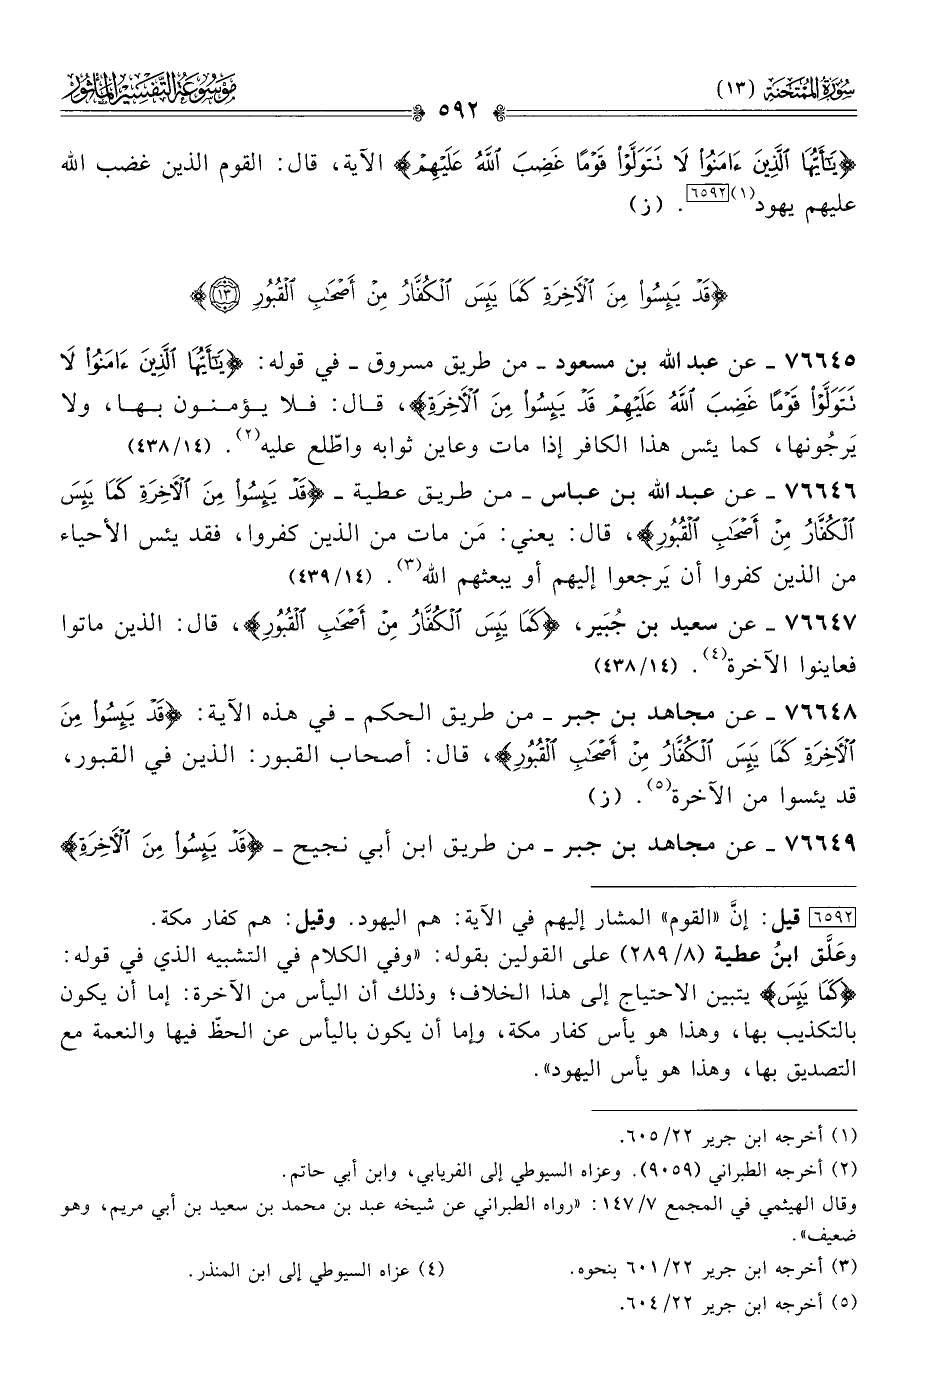 سُورَةُ المُمْتَحنَة (١٣)
مَوْسُوعَة التَّفْسِيْر المَأثُور
٥٩٢
﴿يَٰٓأَيُّهَا ٱلَّذِينَ ءَامَنُوا۟ لَا تَتَوَلَّوْا۟ قَوْمًا غَضِبَ ٱللَّهُ عَلَيْهِمْ﴾ الآية، قال: القوم الذين غضب الله
عليهم يهود(١)[٦٥٩٢]. (ز)
﴿قَدْ يَئِسُوا۟ مِنَ ٱلْأَخِرَةِ كَمَا يَئِسَ ٱلْكُفَّارُ مِنْ أَصْحَٰبِ ٱلْقُبُورِ ۝١٣﴾
٧٦٦٤٥ ـ عن عبد الله بن مسعود ـ من طريق مسروق ـ في قوله: ﴿يَٰٓأَيُّهَا ٱلَّذِينَ ءَامَنُوا۟ لَا
تَتَوَلَّوْا۟ قَوْمًا غَضِبَ ٱللَّهُ عَلَيْهِمْ قَدْ يَئِسُوا۟ مِنَ ٱلْأَخِرَةِ﴾، قال: فلا يؤمنون بها، ولا
يَرجُونها، كما يئس هذا الكافر إذا مات وعاين ثوابه واطّلع عليه(٢). (١٤/ ٤٣٨)
٧٦٦٤٦ ـ عن عبد الله بن عباس ـ من طريق عطية ـ ﴿قَدْ يَئِسُوا۟ مِنَ ٱلْأَخِرَةِ كَمَا يَئِسَ
ٱلْكُفَّارُ مِنْ أَصْحَٰبِ ٱلْقُبُورِ﴾، قال: يعني: مَن مات من الذين كفروا، فقد يئس الأحياء
من الذين كفروا أن يَرجعوا إليهم أو يبعثهم الله(٣). (١٤/ ٤٣٩)
٧٦٦٤٧ ـ عن سعيد بن جُبَير، ﴿كَمَا يَئِسَ ٱلْكُفَّارُ مِنْ أَصْحَٰبِ ٱلْقُبُورِ﴾، قال: الذين ماتوا
فعاينوا الآخرة(٤). (١٤/ ٤٣٨)
٧٦٦٤٨ ـ عن مجاهد بن جبر ـ من طريق الحكم ـ في هذه الآية: ﴿قَدْ يَئِسُوا۟ مِنَ
ٱلْأَخِرَةِ كَمَا يَئِسَ ٱلْكُفَّارُ مِنْ أَصْحَٰبِ ٱلْقُبُورِ﴾، قال: أصحاب القبور: الذين في القبور،
قد يئسوا من الآخرة(٥). (ز)
٧٦٦٤٩ ـ عن مجاهد بن جبر ـ من طريق ابن أبي نجيح ـ ﴿قَدْ يَئِسُوا۟ مِنَ ٱلْأَخِرَةِ﴾
[٦٥٩٢] قيل: إنَّ «القوم» المشار إليهم في الآية: هم اليهود. وقيل: هم كفار مكة.
وعَلَّق ابنُ عطية (٨/ ٢٨٩) على القولين بقوله: «وفي الكلام في التشبيه الذي في قوله:
﴿كَمَا يَئِسَ﴾ يتبين الاحتياج إلى هذا الخلاف؛ وذلك أن اليأس من الآخرة: إما أن يكون
بالتكذيب بها، وهذا هو يأس كفار مكة، وإما أن يكون باليأس عن الحظّ فيها والنعمة مع
التصديق بها، وهذا هو يأس اليهود».
(١) أخرجه ابن جرير ٢٢/ ٦٠٥.
(٢) أخرجه الطبراني (٩٠٥٩). وعزاه السيوطي إلى الفريابي، وابن أبي حاتم.
وقال الهيثمي في المجمع ٧/ ١٤٧: «رواه الطبراني عن شيخه عبد بن محمد بن سعيد بن أبي مريم، وهو
ضعيف».
(٣) أخرجه ابن جرير ٢٢/ ٦٠١ بنحوه. (٤) عزاه السيوطي إلى ابن المنذر.
(٥) أخرجه ابن جرير ٢٢/ ٦٠٤.